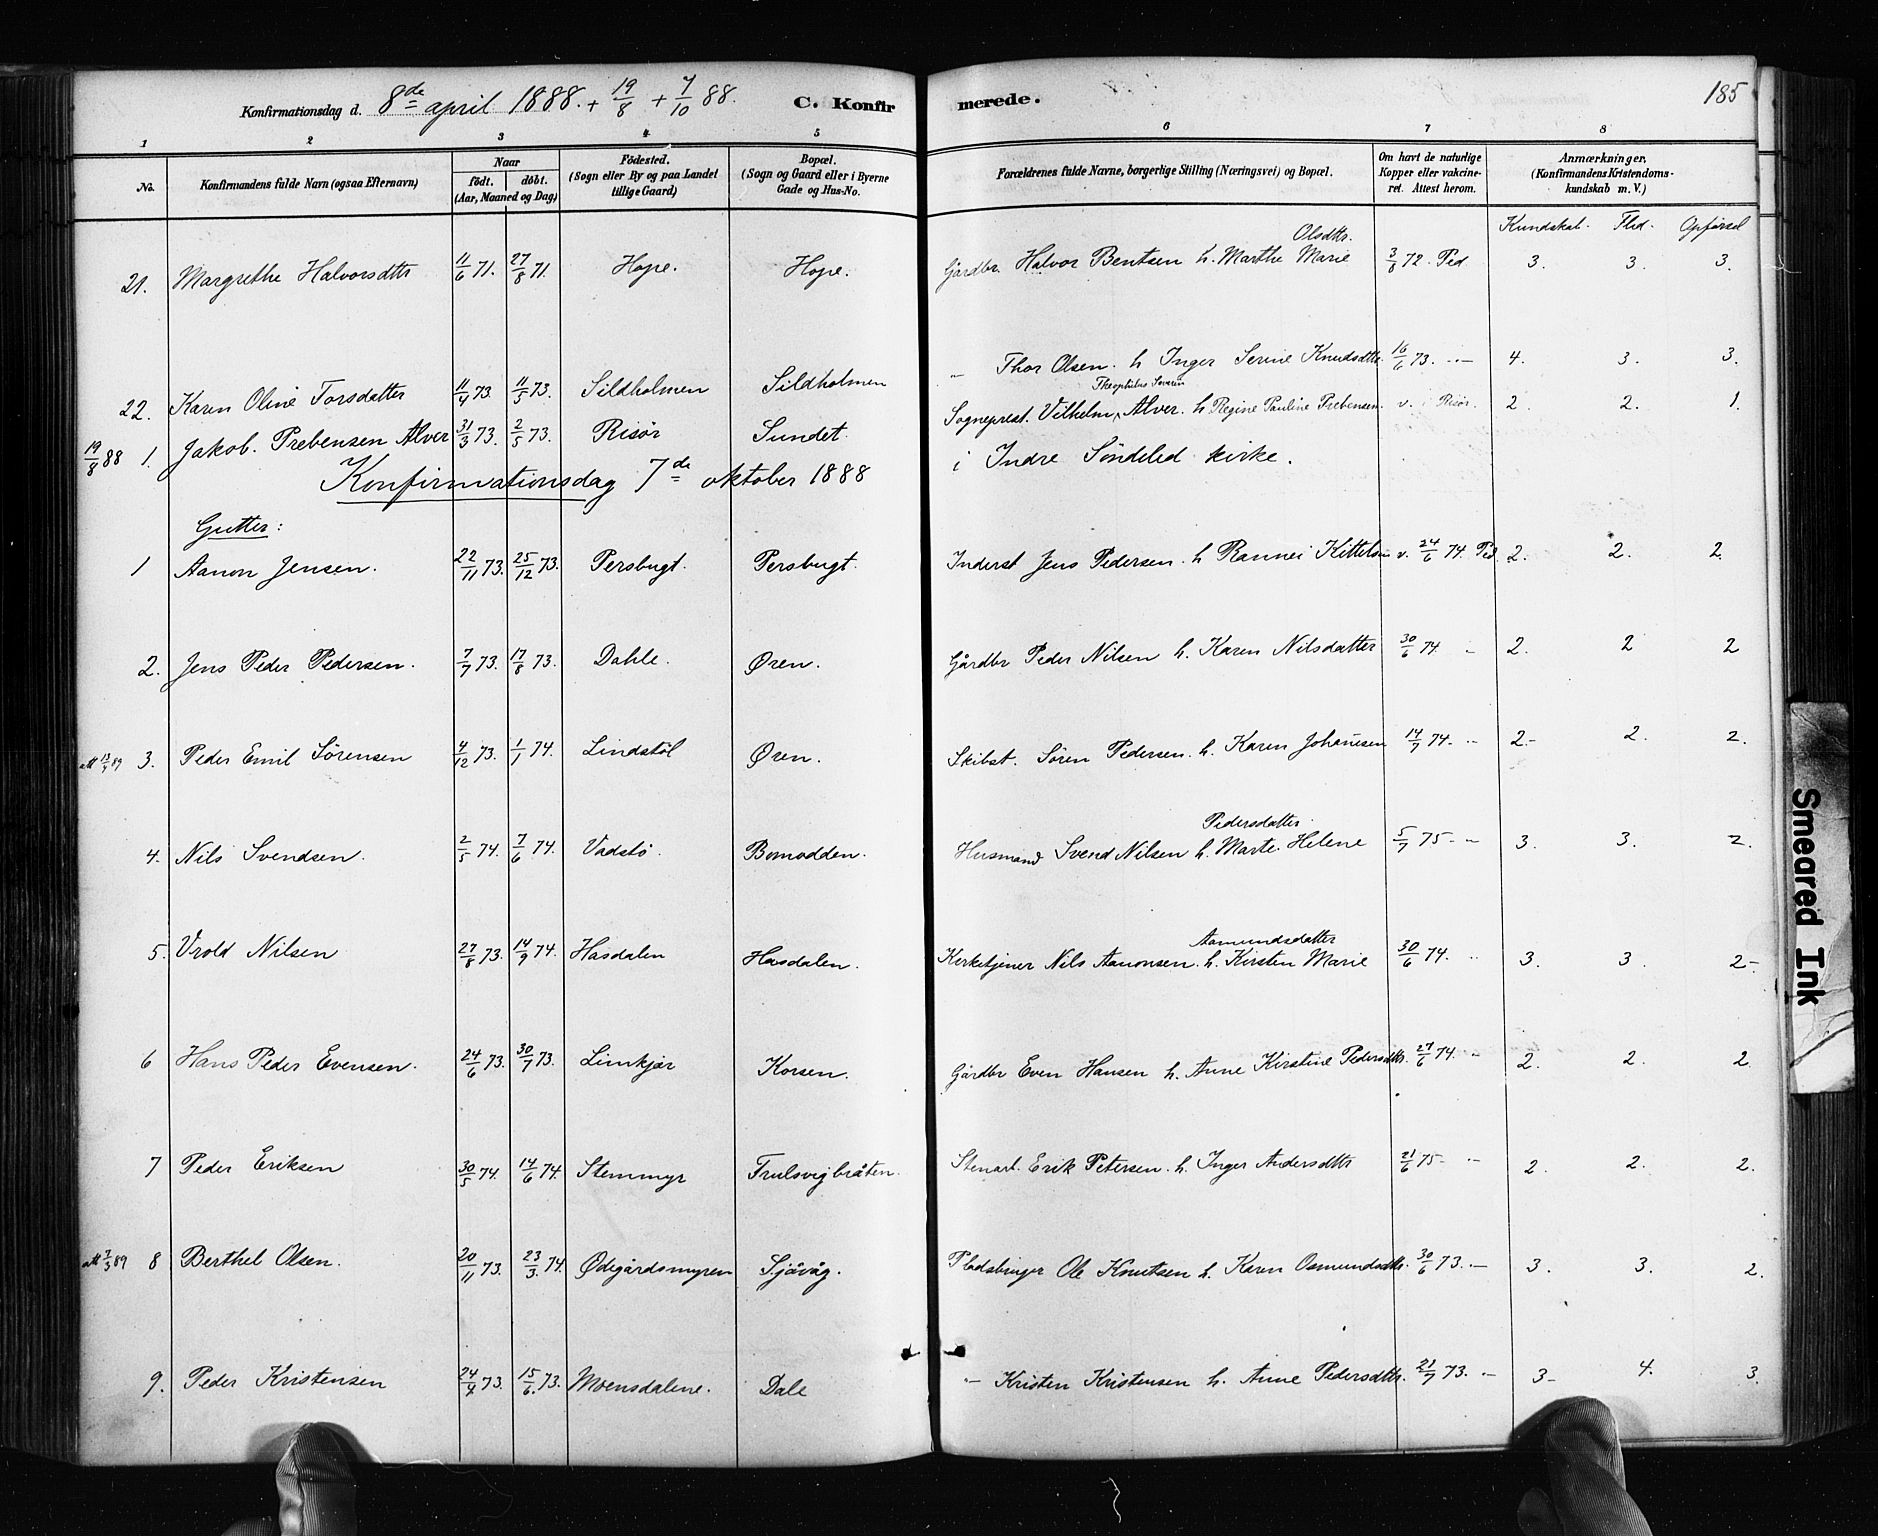 Konfirmationsdag d. 8de april 1888. + 19/8 + 7/10 88. C. Konfirmerede. 185
1 2 3 4 5 6 7 8
No. Konfirmandens fulde Navn (ogsaa Efternavn) Naar født. døbt. (Aar, Maaned og Dag) Fødested. (Sogn eller By og paa Landet tillige Gaard) Bopæl. (Sogn og Gaard eller i Byerne Gade og Hus-No. Forældrenes fulde Navne, borgerlige Stilling (Næringsvei) og Bopæl. Om havt de naturlige Kopper eller vakcineret. Attest herom. Anmærkninger. (Konfirmandens Kristendomskundskab m. V.)
Kundskab. Flid. Opførsel
21. Margrethe Halvorsdttr 11/6 71. 27/8 71. Hope. Hope. Gårdbr. Halvor Bentsen h. Marthe Marie Olsdttr. 3/8 72. Ped. 3. 3. 3.
22. Karen Oline Torsdatter 11/4 73. 11/5 73. Sildholmen Sildholmen " Thor Olsen. h Inger Serine Knudsdttr. 16/6 73. " 4. 3. 3.
19/8 88 1. Jakob. Prebensen Alver 31/3 73. 2/5 73. Risør Sundet. Sogneprest. Vilhelm Theophilus Severin Alver. h. Regine Pauline Prebensen. v. Risør. 2. 2. 1.
Konfirmationsdag 7de oktober 1888 i Indre Søndeled kirke.
Gutter:
1 Aanon Jensen. 22/11 73. 25/12 73. Persbugt. Persbugt. Inderst Jens Pedersen. h Rannei Kittels v. 24/6 74. Ped 2. 2. 2.
2. Jens Peder Pedersen. 7/7 73. 17/8 73. Dahle. Øren. Gårdbr Peder Nilsen h. Karen Nilsdatter 30/6 74. " 2. 2 2
att 89 3. Peder Emil Sørensen 4/12 73. 1/1 74. Lindstøl Øren. Skibst. Søren Pedersen. h. Karen Johannsen 14/7 74. " 2. 2. 2.
4. Nils Svendsen. 2/5 74. 7/6 74. Vadstø. Bomodden. Husmand Svend Nilsen h. Marte Helene Pedersdatter 5/7 75. " 3. 3. 2.
5. Vrold Nilsen 27/8 73. 14/9 74. Hasdalen Hasdalen. Kirketjener Nils Aanonsen. h. Kirsten Marie Aamundsdatter 30/6 74. " 3. 3. 2.
6 Hans Peder Evensen. 24/6 73. 30/7 73. Limkjær Korsen. Gårdbr Even Hansen h. Anne Kirstine Pedersdttr. 27/6 74. " 2. 2. 2
7 Peder Eriksen 30/5 74. 14/6 74. Stemmyr Trulsvigbråten. Stenarb. Erik Petersen. h. Inger Andersdttr 21/6 75. " 2. 2. 2.
att 7/3 89 8 Berthel Olsen. 20/11 73. 23/3. 74. Ødegårdsmyren Sjåvåg. Pladsbruger Ole Knutsen h. Karen Osmundsdttr. 30/6 73. " 3. 3. 2.
9. Peder Kristensen 24/4 73. 15/6. 73. Moensdalene. Dale " Kristen Kristensen h. Anne Pedersdttr. 21/7 73. " 3. 4. 3.
Smeared Ink